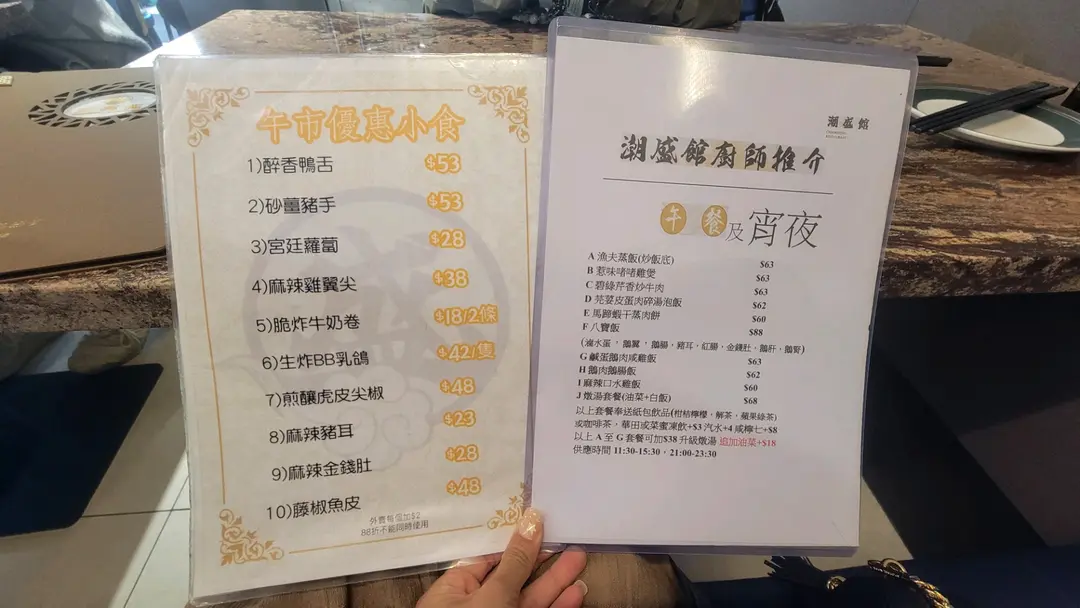 午市優惠小食
1)醉香鴨舌 $53
2)砂薑豬手 $53
3)宮廷蘿蔔 $28
4)麻辣雞翼尖 $38
5)脆炸牛奶卷 $18/2條
6)生炸BB乳鴿 $42/隻
7)煎釀虎皮尖椒 $48
8)麻辣豬耳 $23
9)麻辣金錢肚 $28
10)藤椒魚皮 $48
外賣每個加$2
88折不能同時使用
潮盛館
潮盛館廚師推介
午餐及宵夜
A 漁夫蒸飯(炒飯底) $63
B 惹味啫啫雞煲 $63
C 碧綠芹香炒牛肉 $63
D 芫荽皮蛋肉碎湯泡飯 $62
E 馬蹄蝦干蒸肉餅 $60
F 八寶飯 $88
(滷水蛋，鵝翼，鵝腸，豬耳，紅腸，金錢肚，鵝肝，鵝腎)
G 鹹蛋鵝肉咸雞飯 $63
H 鵝肉鵝腸飯 $62
I 麻辣口水雞飯 $60
J 燉湯套餐(油菜+白飯) $68
以上套餐奉送紙包飲品(柑桔檸檬，解茶，蘋果綠茶)
或咖啡茶，華田或菜蜜凍飲+$3 汽水+4 咸檸七+$8
以上 A 至 G 套餐可加$38 升級燉湯 追加油菜+$18
供應時間 11:30-15:30，21:00-23:30